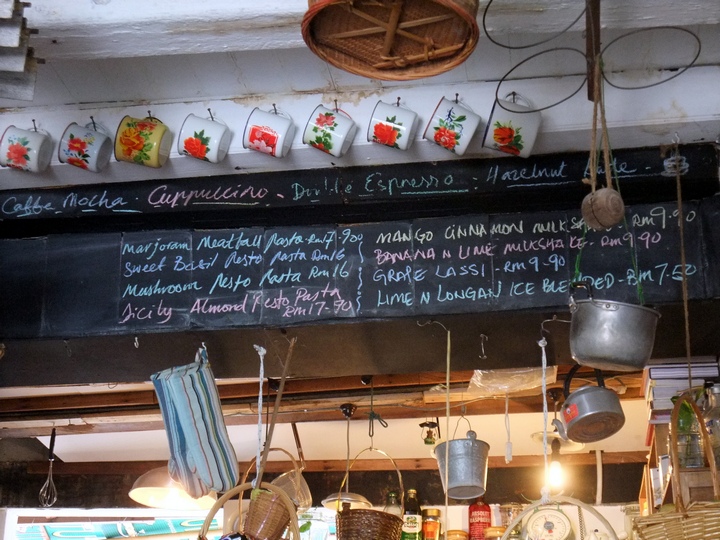 Caffe Mocha. Cappuccino - Double Espresso. Hazelnut Latte -
Marjoram Meatball Pasta - Rm17-90
Sweet Basil Pesto Pasta Rm16
Mushroom Pesto Pasta Rm16
Sicily Almond Pesto Pasta
Rm17-90
MANGO CINNAMON MILKSHAKE - RM9-90
BANANA N LIME MILKSHAKE - RM9-90
GRAPE LASSI - RM9-90
LIME N LONGAN ICE BLENDED - RM7-50